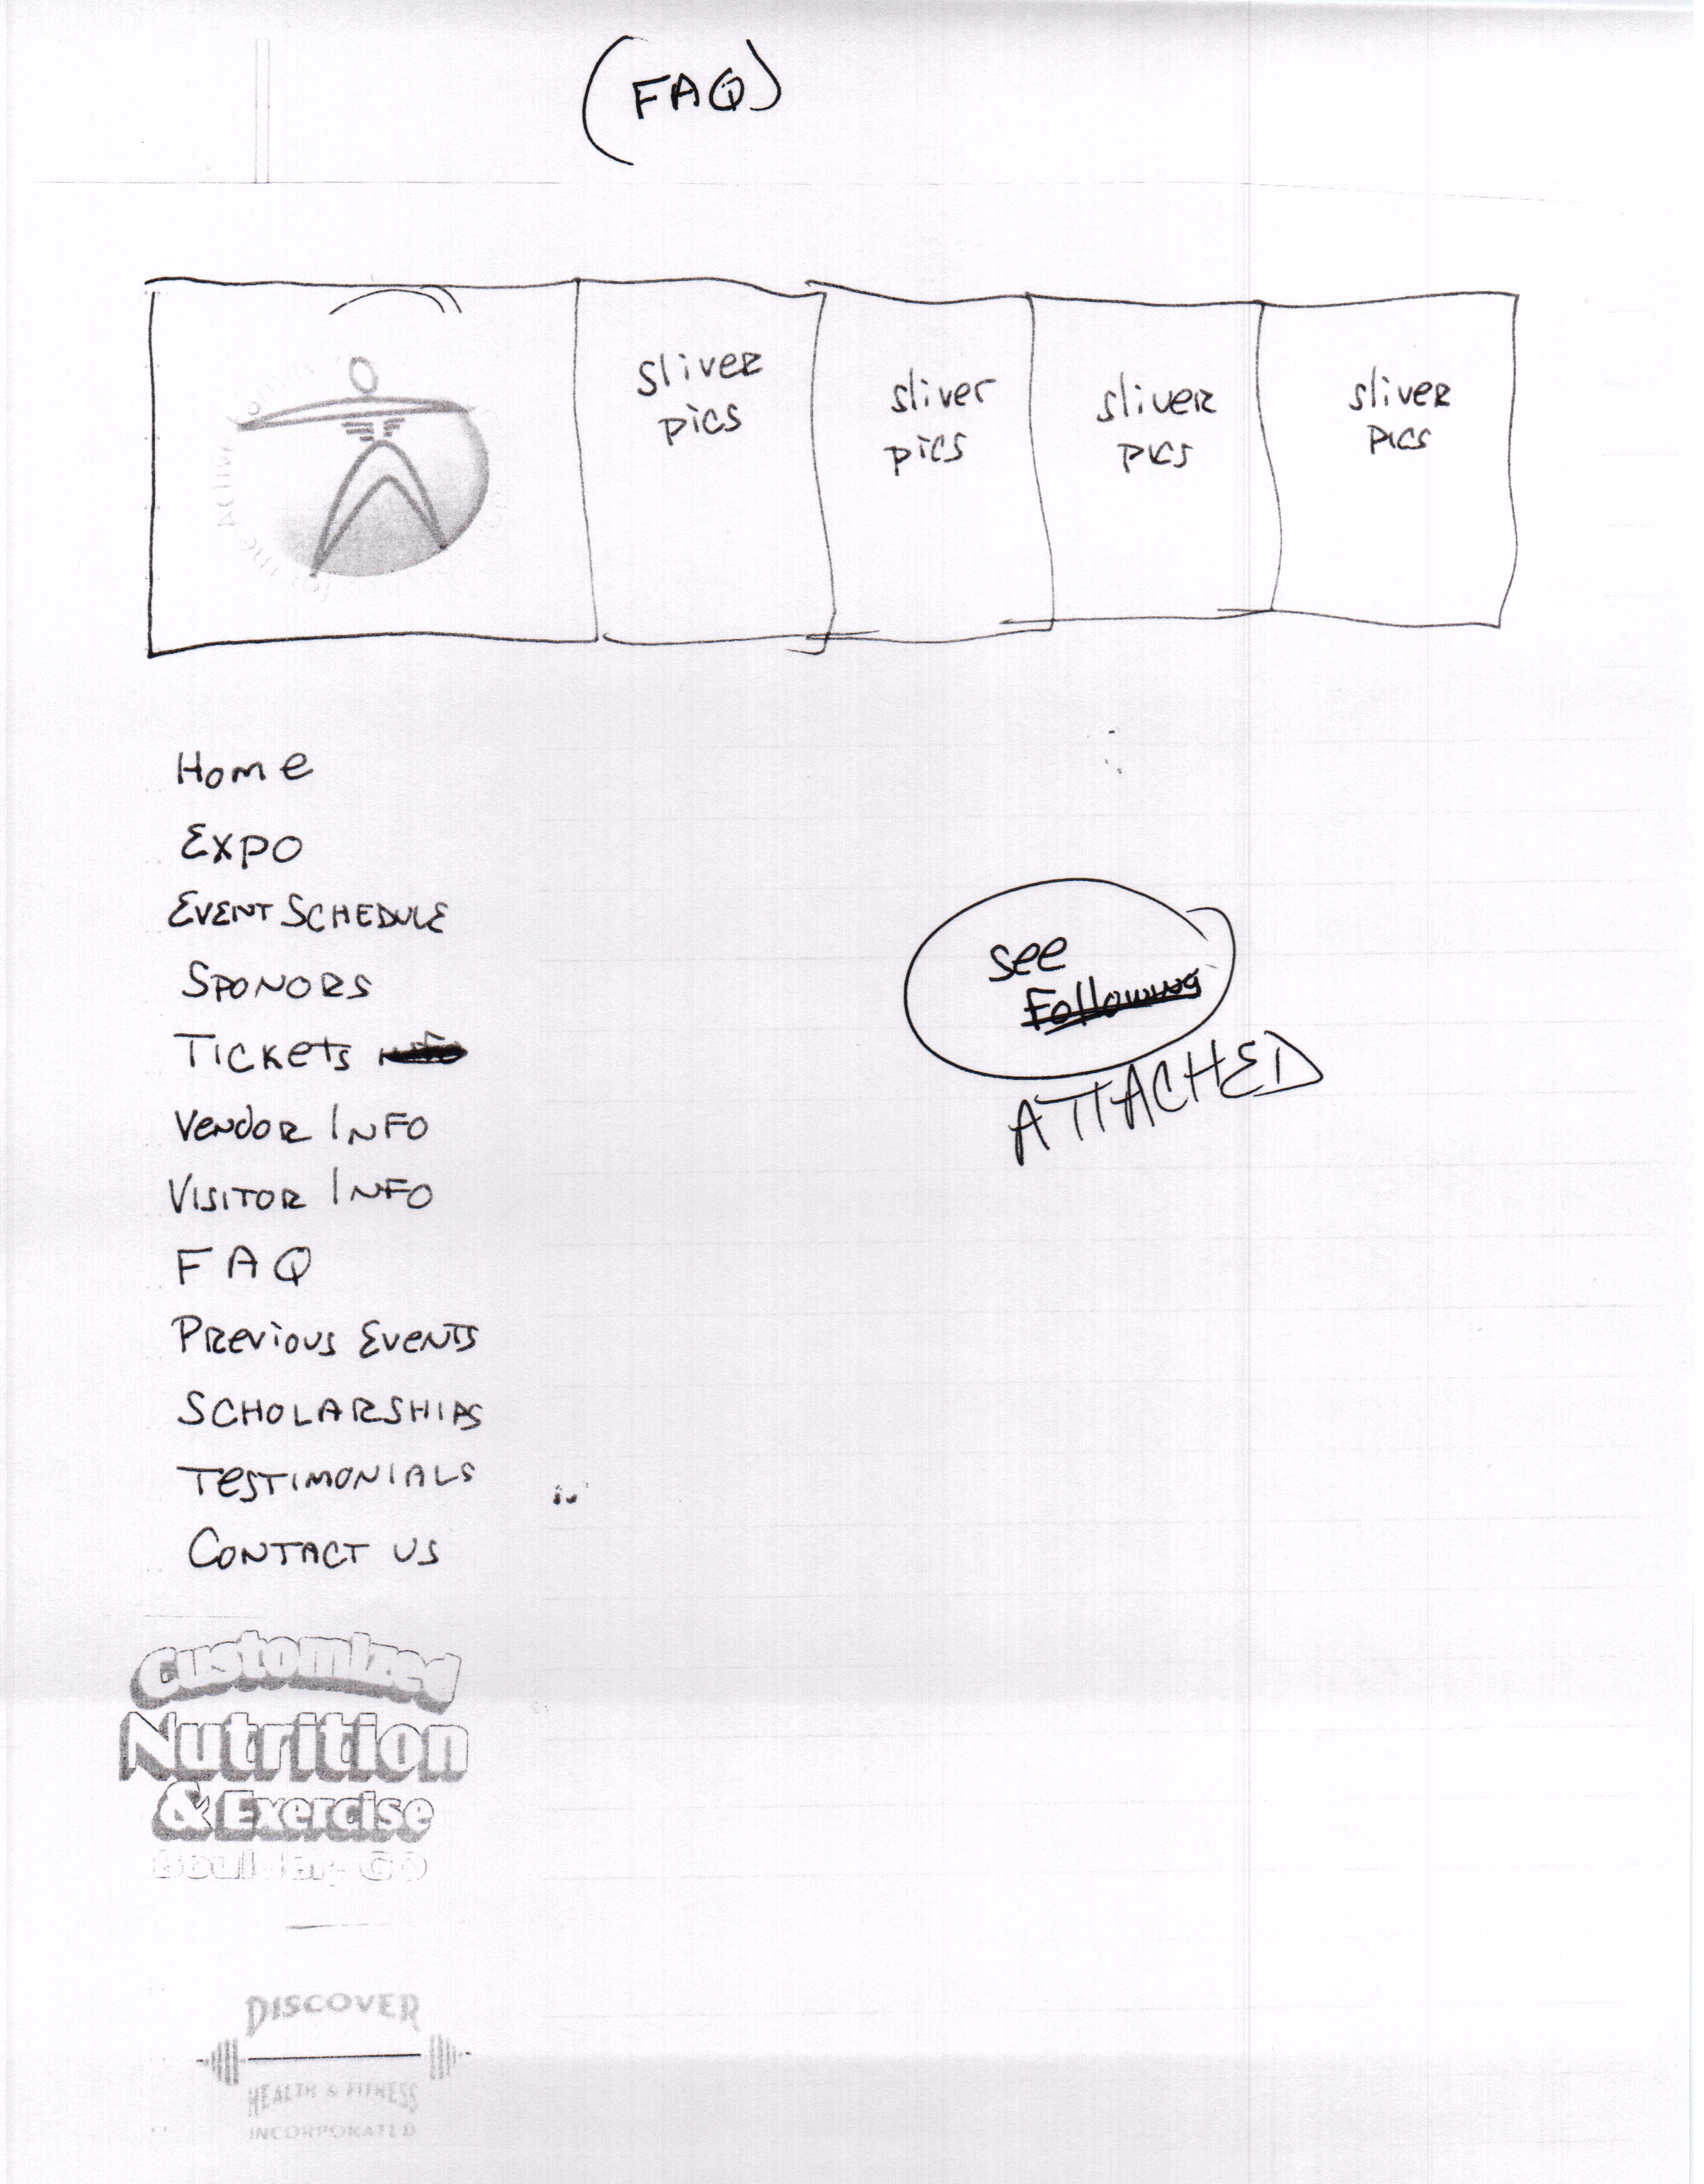 (FAQ)
for the Active
sliver
pics
sliver
pics
sliver
pics
sliver
pics
Home
Expo
EVENT SCHEDULE
SPONORS
TICKETS
VENDOR INFO
VISITOR INFO
FAQ
PREVIOUS EVENTS
SCHOLARSHIPS
TESTIMONIALS
CONTACT US
see
Following
ATTACHED
Customized
Nutrition
& Exercise
Boulder, CO
DISCOVER
HEALTH & FITNESS
INCORPORATED